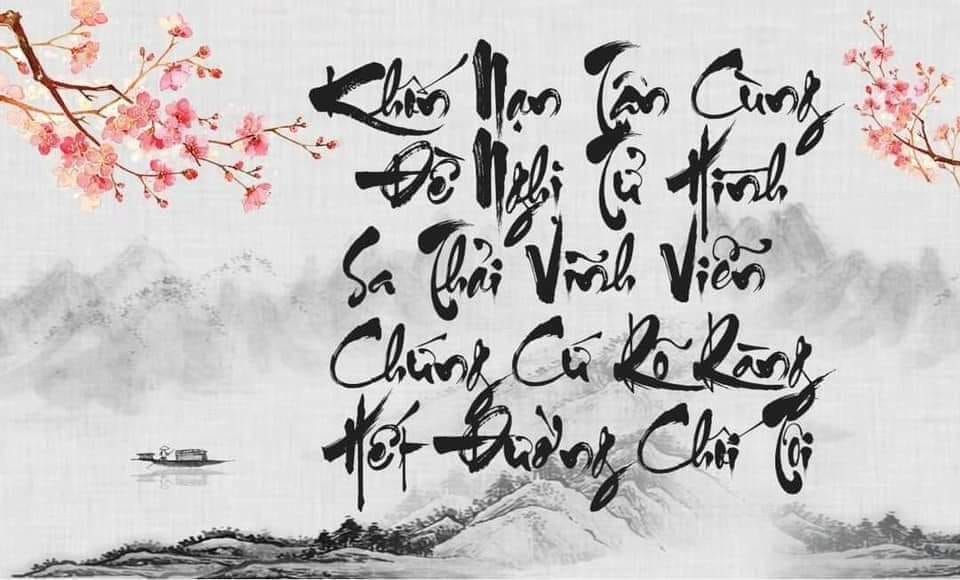 Khốn Nạn Tận Cùng
Đề Nghị Tử Hình
Sa Thải Vĩnh Viễn
Chứng Cứ Rõ Ràng
Hết Đường Chối Tội